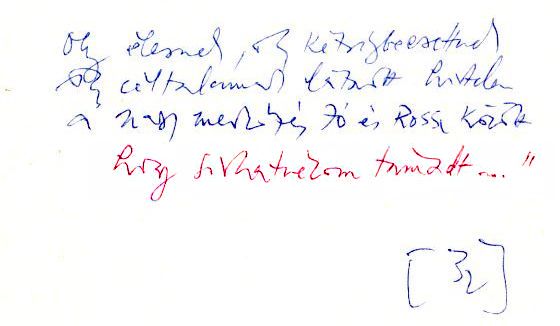 Oly élesnek, oly kétségbeesettnek
oly céltalannak látszott hirtelen
a nagy mérkőzés Jó és Rossz között
hogy sírhatnékom támadt..."
[32]